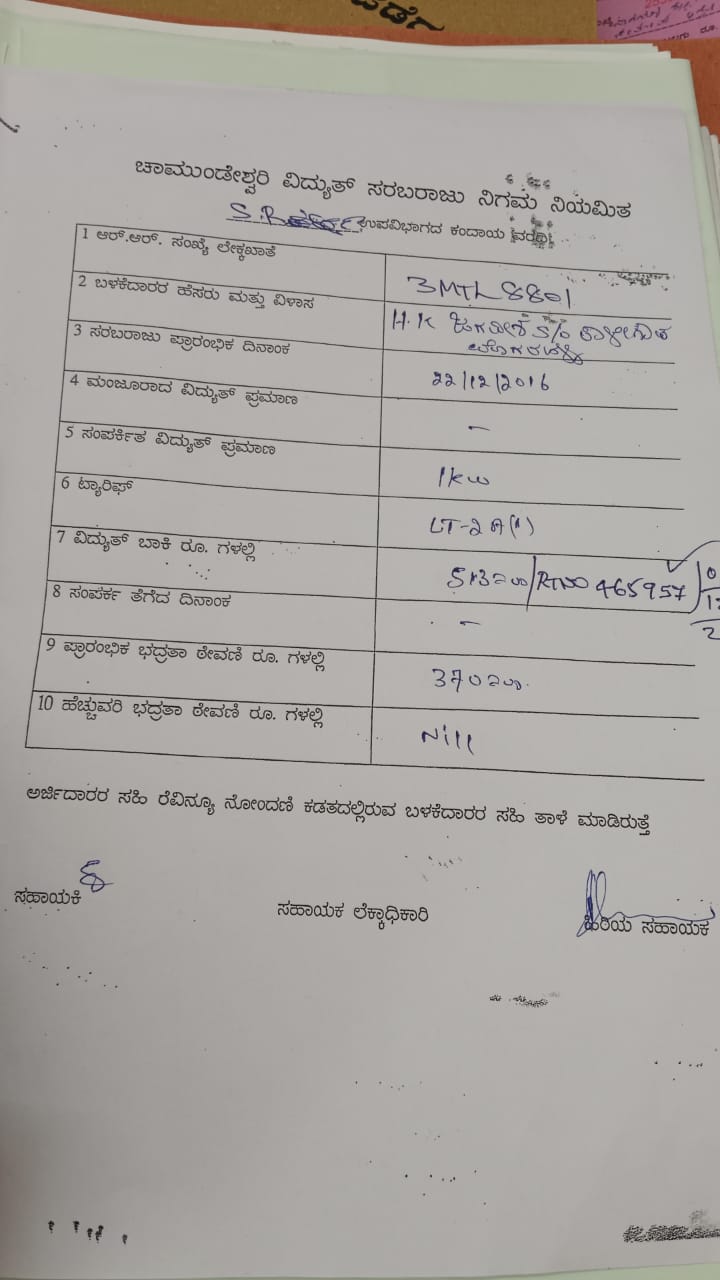 ಚಾಮುಂಡೇಶ್ವರಿ ವಿದ್ಯುತ್ ಸರಬರಾಜು ನಿಗಮ ನಿಯಮಿತ
ಉಪವಿಭಾಗದ ಕಂದಾಯ ವರದಿ
1 ಆರ್.ಆರ್. ಸಂಖ್ಯೆ ಲೇಕ್ಕಖಾತೆ 3MTL8801
2 ಬಳಕೆದಾರರ ಹೆಸರು ಮತ್ತು ವಿಳಾಸ H.K S/o
3 ಸರಬರಾಜು ಪ್ರಾರಂಭಿಕ ದಿನಾಂಕ 22/12/2016
4 ಮಂಜೂರಾದ ವಿದ್ಯುತ್ ಪ್ರಮಾಣ -
5 ಸಂಪರ್ಕಿತ ವಿದ್ಯುತ್ ಪ್ರಮಾಣ 1kw
6 ಟ್ಯಾರಿಫ್ LT-2A(1)
7 ವಿದ್ಯುತ್ ಬಾಕಿ ರೂ. ಗಳಲ್ಲಿ 465957
8 ಸಂಪರ್ಕ ತೆಗೆದ ದಿನಾಂಕ -
9 ಪ್ರಾರಂಭಿಕ ಭದ್ರತಾ ಠೇವಣಿ ರೂ. ಗಳಲ್ಲಿ
10 ಹೆಚ್ಚುವರಿ ಭದ್ರತಾ ಠೇವಣಿ ರೂ. ಗಳಲ್ಲಿ Nill
ಅರ್ಜಿದಾರರ ಸಹಿ ರೆವಿನ್ಯೂ ನೋಂದಣಿ ಕಡತದಲ್ಲಿರುವ ಬಳಕೆದಾರರ ಸಹಿ ತಾಳೆ ಮಾಡಿರುತ್ತೆ
ಸಹಾಯಕಿ ಸಹಾಯಕ ಲೆಕ್ಕಾಧಿಕಾರಿ ಹಿರಿಯ ಸಹಾಯಕ